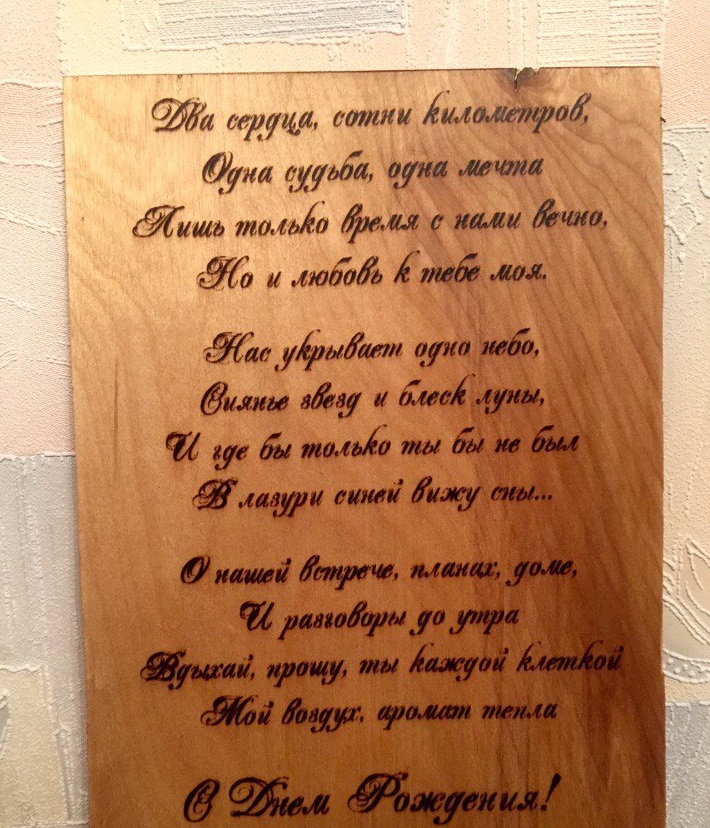 Два сердца, сотни километров,
Одна судьба, одна мечта
Лишь только время с нами вечно,
Но и любовь к тебе моя.
Нас укрывает одно небо,
Сиянье звезд и блеск луны,
И где бы только ты бы не был
В лазури синей вижу сны...
О нашей встрече, планах, доме,
И разговоры до утра
Вдыхай, прошу, ты каждой клеткой
Мой воздух, аромат тепла
С Днем Рождения!